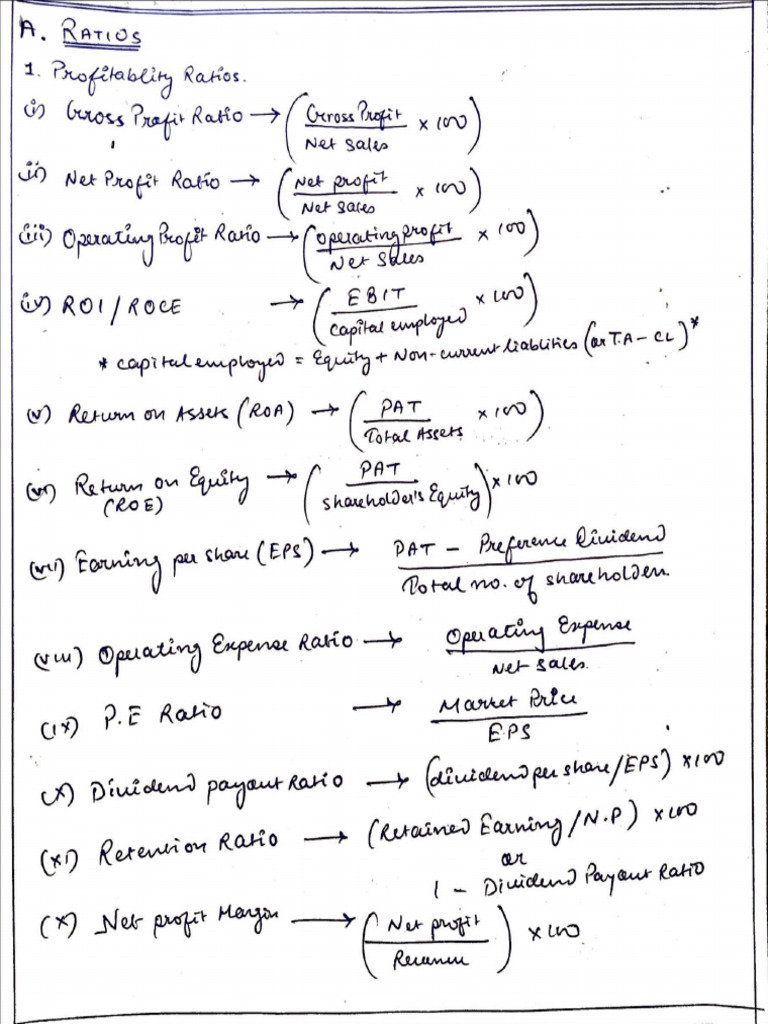 A. RATIOS
1. Profitablity Ratios.
(i) Gross Profit Ratio → (Gross Profit / Net Sales × 100)
(ii) Net Profit Ratio → (Net profit / Net Sales × 100)
(iii) Operating Profit Ratio → (Operating profit / Net Sales × 100)
(iv) ROI / ROCE → (EBIT / Capital employed × 100)
* capital employed = Equity + Non-current liablities (or T.A - CL)*
(v) Return on Assets (ROA) → (PAT / Total Assets × 100)
(vi) Return on Equity (ROE) → (PAT / Shareholder's Equity) × 100
(vii) Earning per share (EPS) → PAT - Preference Dividend / Total no. of shareholders.
(viii) Operating Expense Ratio → Operating Expense / Net Sales.
(ix) P.E Ratio → Market Price / EPS
(x) Dividend payout Ratio → (dividend per share/EPS) × 100
(xi) Retention Ratio → (Retained Earning / N.P) × 100
or
1 - Dividend Payout Ratio
(x) Net profit Margin → (Net profit / Revenue) × 100